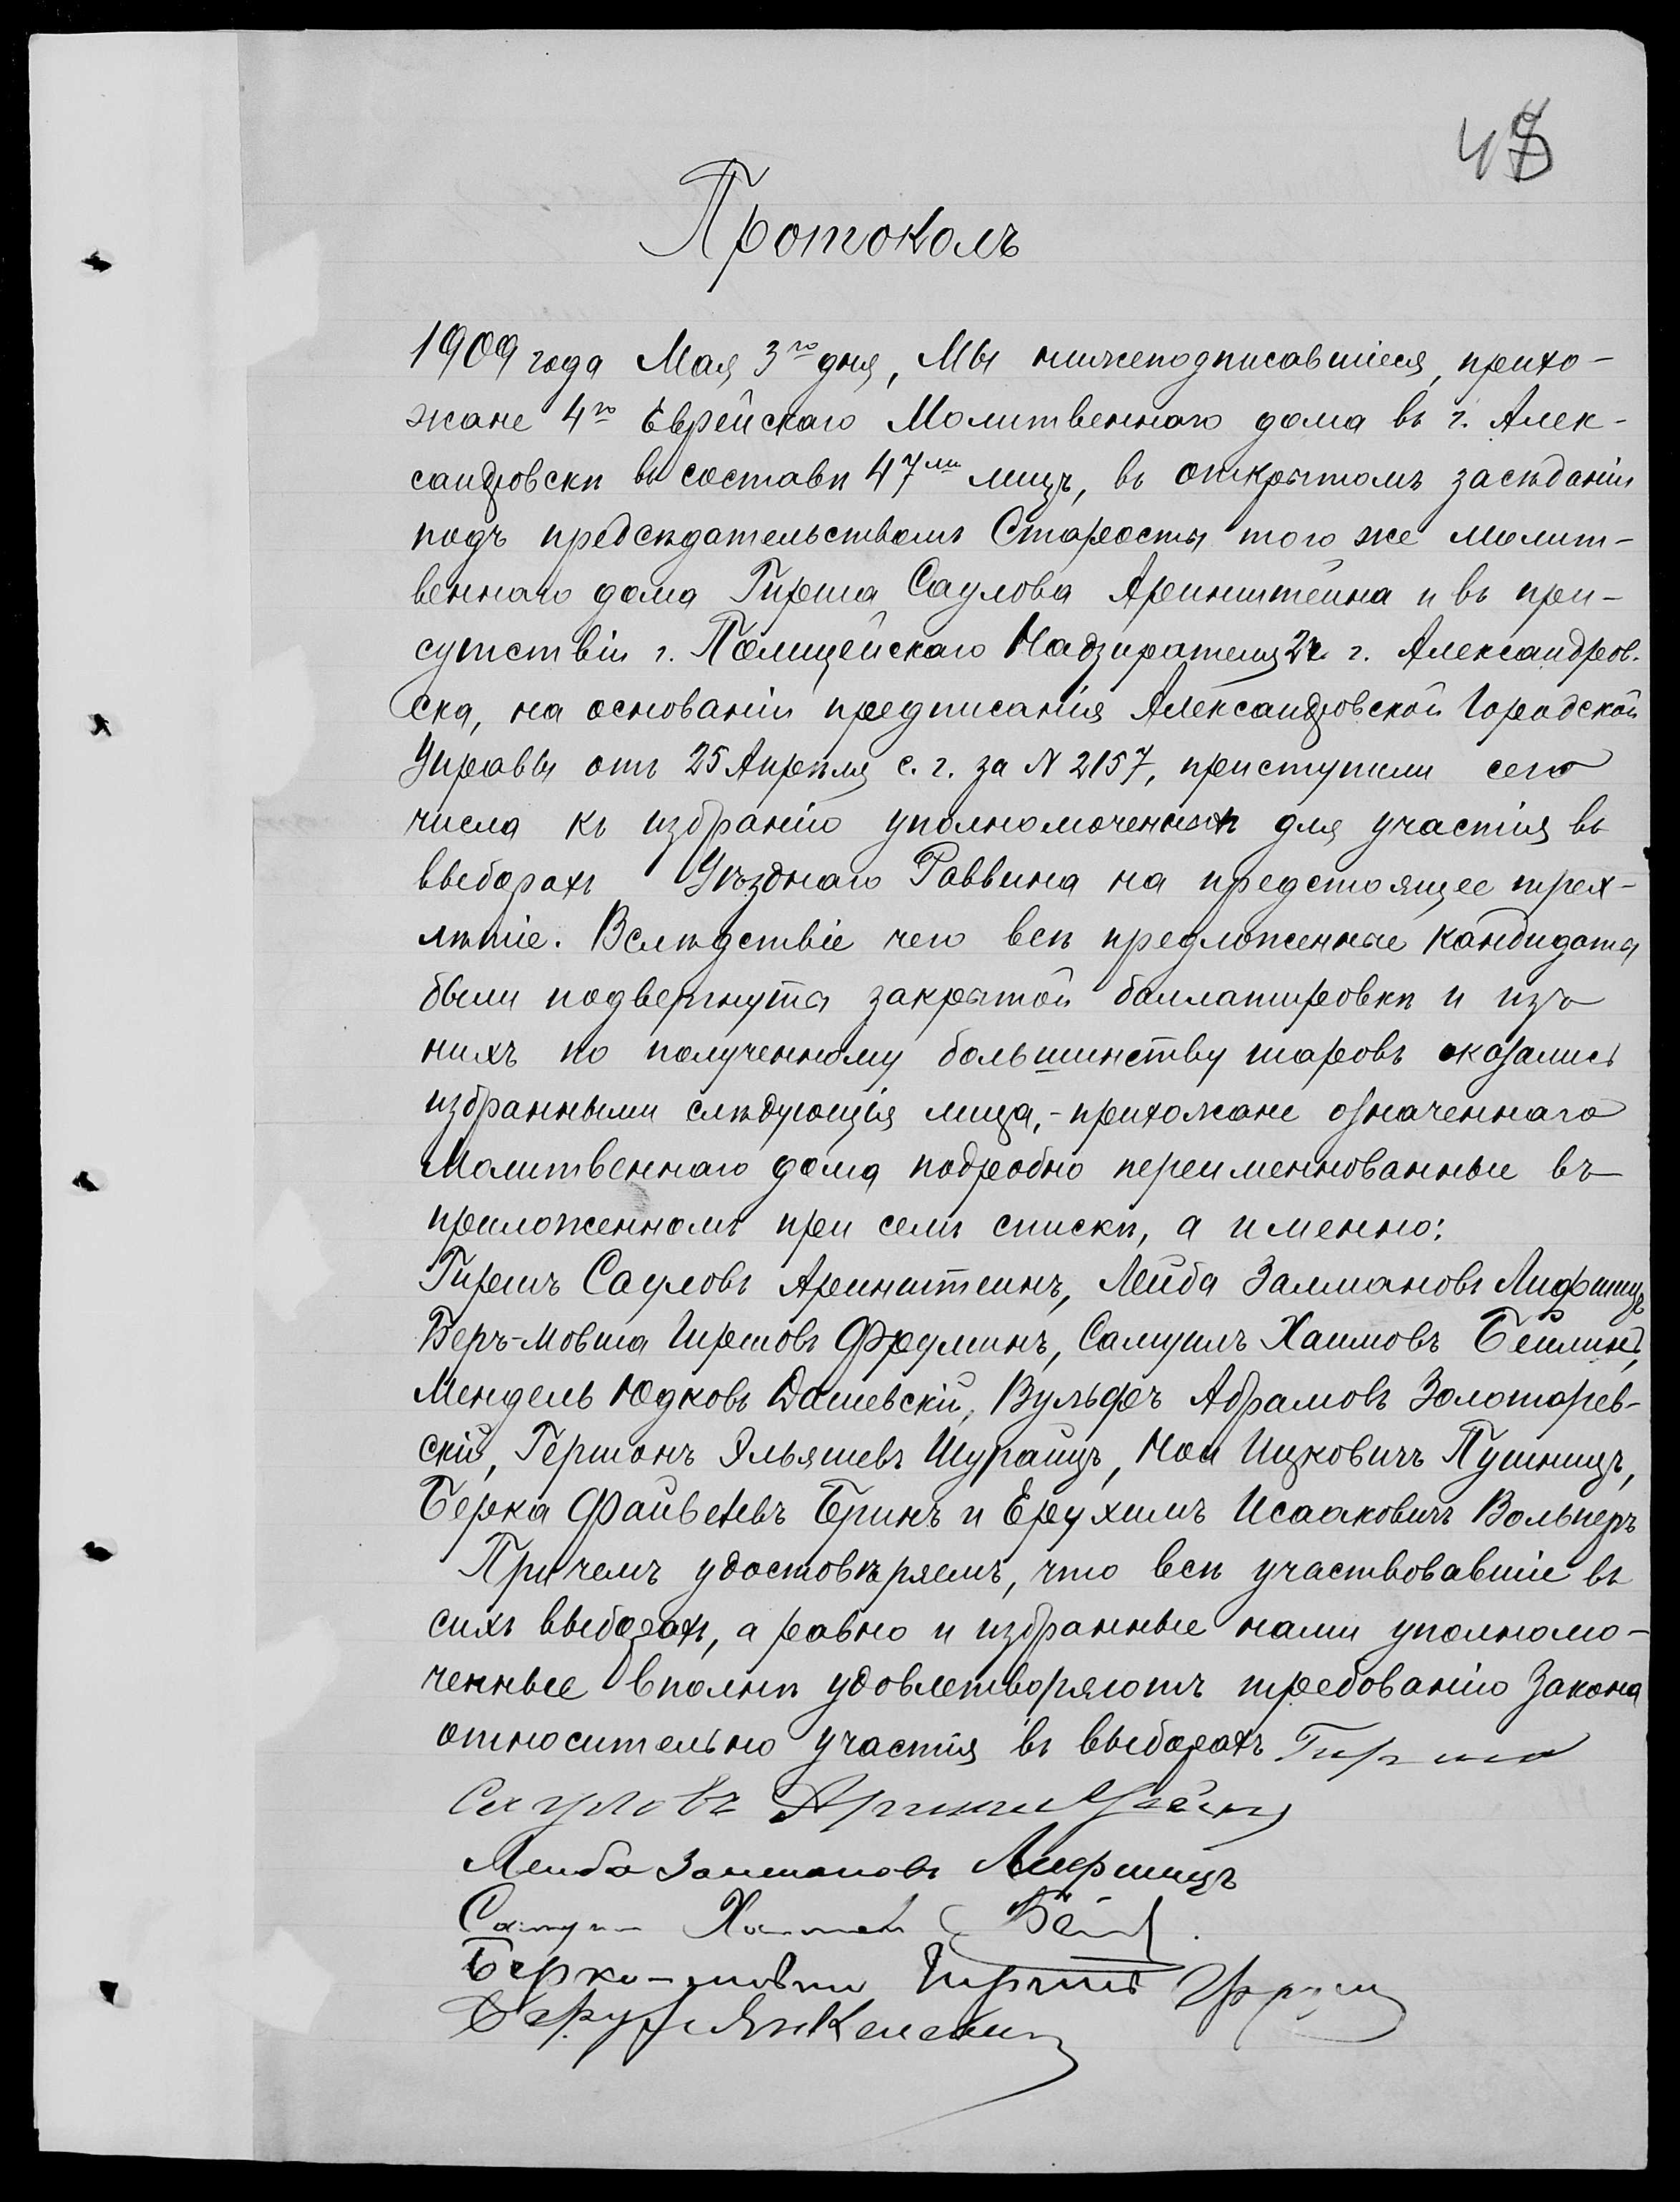 Протоколъ
1909 года Мая 3го дня, Мы нижеподписавшіеся, прихо-
жане 4го Еврейскаго Молитвеннаго дома въ г. Алек-
сандровскѣ въ составѣ 47ми лицъ, въ открытомъ засѣданіи
подъ предсѣдательствомъ Старосты того же молит-
веннаго дома Гирша Саулова Аринштейна и въ при-
сутствіи г. Полицейскаго Надзирателя 2ч. г. Александров-
ска, на основаніи предписанія Александровской Городской
Управы отъ 25 Апрѣля с. г. за N 2157, приступили сего
числа къ избранію уполномоченныхъ для участія въ
выборахъ Уѣзднаго Раввина на предстоящее трех-
лѣтіе. Вслѣдствіе чего всѣ предложенные кандидаты
были подвергнуты закрытой баллатировкѣ и изъ
нихъ по полученному большинству шаровъ оказались
избранными слѣдующія лица,- прихожане означеннаго
Молитвеннаго дома подробно переименнованные въ
приложенномъ при семъ спискѣ, а именно:
Гиршъ Сауловъ Аринштеинъ, Лейба Залмановъ Лифшицъ
Беръ-Мовша Гиршовъ Фрудминъ, Самуилъ Хаимовъ Бейлинъ,
Мендель Юдковъ Дашевскій, Вульфъ Абрамовъ Золоторев-
скій, Гершонъ Эльяшевъ Шурацъ, Ноя Ицковичъ Пушницъ,
Берка Файвелевъ Бринъ и Ерухимъ Исааковичъ Вольперъ
Причемъ удостовѣряемъ, что всѣ участвовавшіе въ
сихъ выборахъ, а равно и избранные нами уполномо-
ченные вполнѣ удовлетворяютъ требованію Закона
относительно участія въ выборахъ Гирша
Сауловъ Аринштейнъ
Лейба Залмановъ Лифшицъ
Самуилъ Хаимовъ
Берко-мовша Гиршовъ